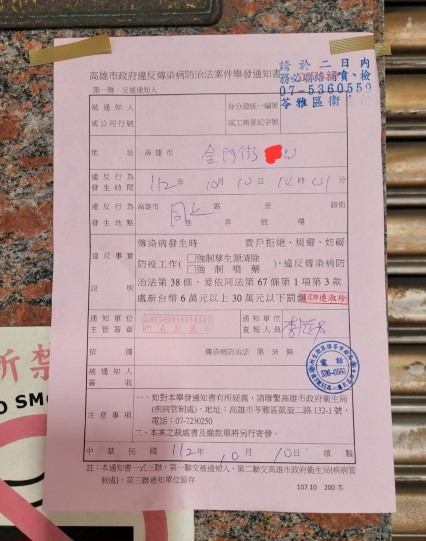 高雄市政府違反傳染病防治法案件舉發通知書
請於二日內
務必聯絡補噴、檢
07-5360559
苓雅區衛
第一聯:交被通知人
被通知人
或公司行號
身分證統一編號
或工商登記字號
地址 高雄市 金門街
違反行為
發生時間
112年10月10日14時 分
違反行為
發生地點
高雄市 同上 區 里 路街
巷 弄 號 樓
違反事實
說明
傳染病發生時 貴戶拒絕、規避、妨礙
防疫工作(□強制孳生源清除
□強制噴藥),違反傳染病防
治法第38條,爰依同法第67條第1項第3款
處新台幣6萬元以上30萬元以下罰鍰
通知單位
主管簽章
通知單位
查報人員
依據 傳染病防治法 第38條
被通知人
簽收
注意事項
一、如對本舉發通知書有所疑義,請聯繫高雄市政府衛生局
(疾病管制處),地址:高雄市苓雅區凱旋二路132-1號,
電話:07-7230250
二、本案之裁處書及繳款單將另行寄發。
中華民國112年10月10日填製
註:本通知書一式三聯,第一聯交被通知人,第二聯交高雄市政府衛生局(疾病管
制處),第三聯通知單位留存
107.10 200本
所禁
O SMO